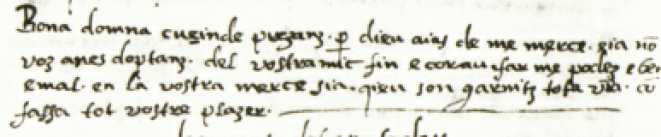 Bona domna cuginde prezanz. p dieu aias de me merce. gia nō
voz anes doptanz. del vostramic fin e corau. far me podez e ben
emal. en la vostra merce sia. qieu son garnitz tota via. cū
fassa tot vostre plazer.